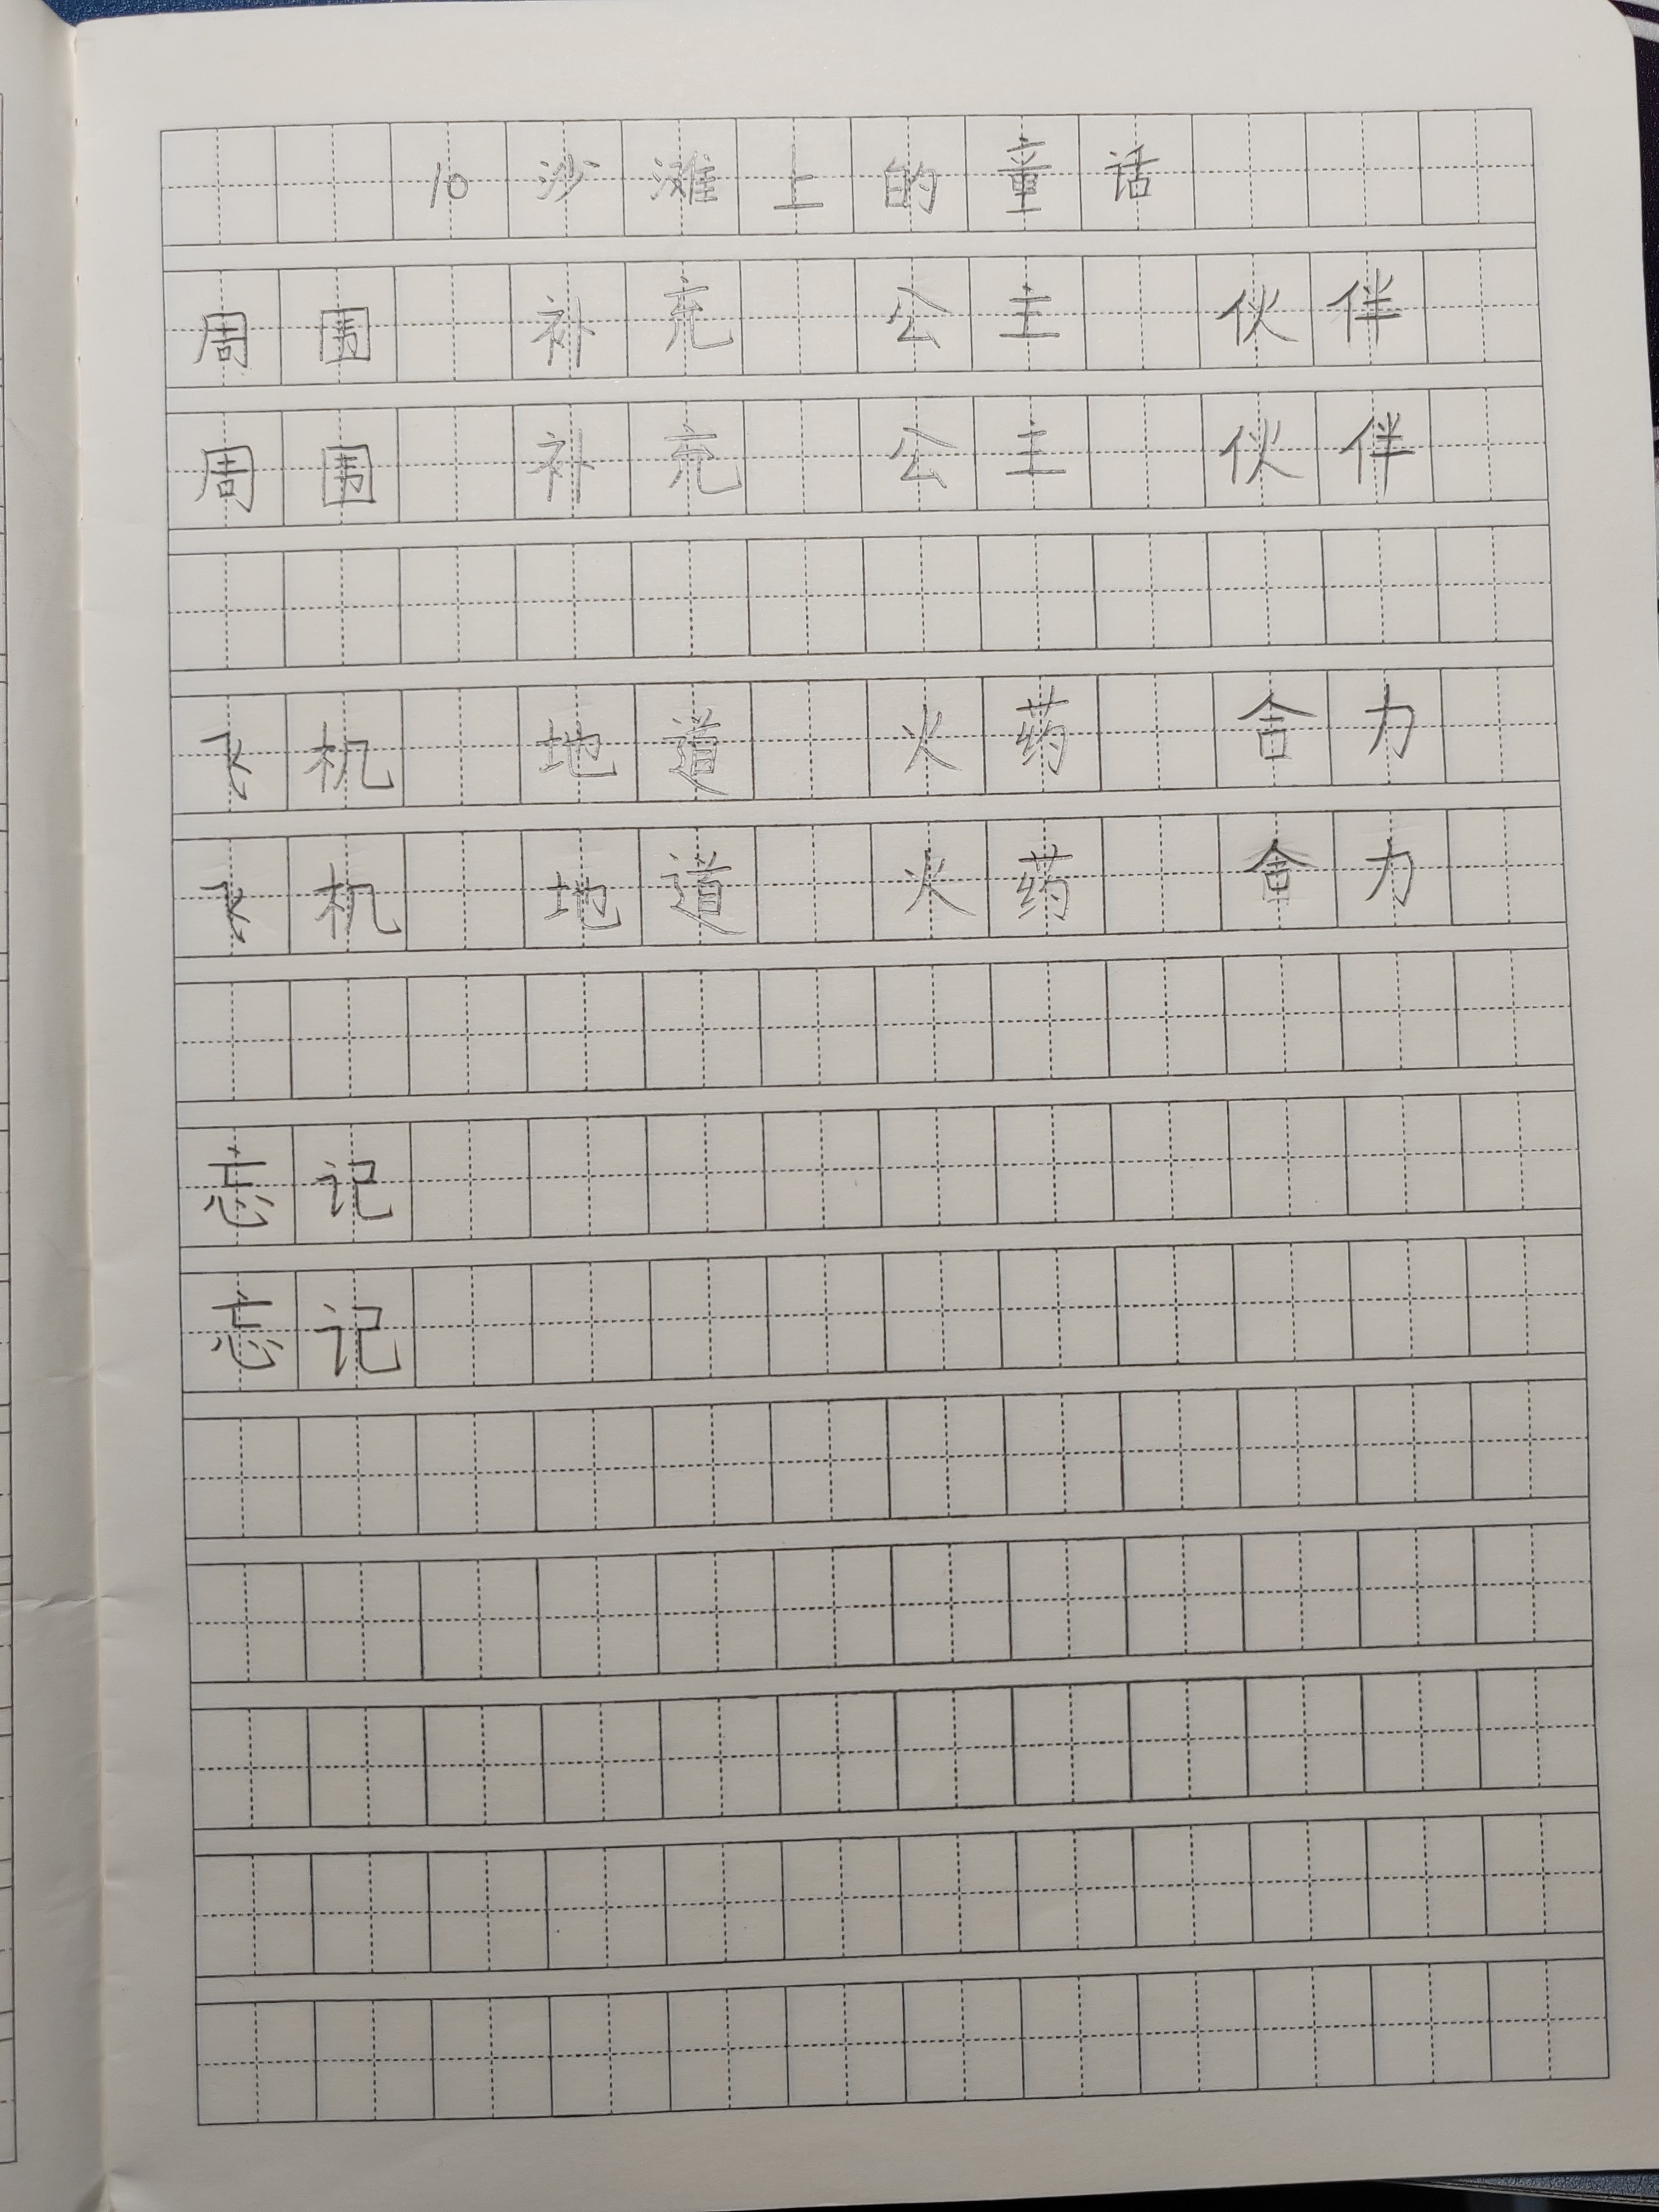 10沙滩上的童话
周围 补充 公主 伙伴
周围 补充 公主 伙伴
飞机 地道 火药 舍力
飞机 地道 火药 舍力
忘记
忘记